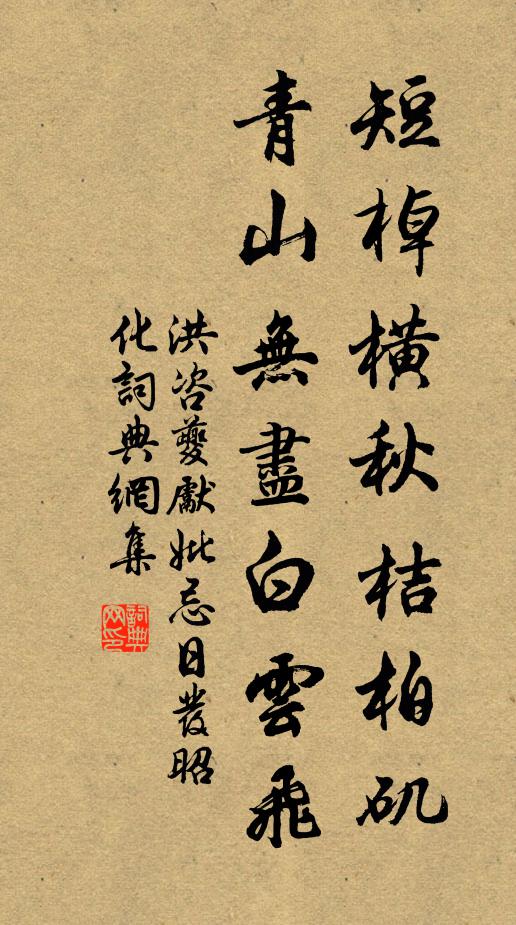 短棹橫秋桔柏矶
青山無盡白雲飛
洪咨夔獻妣忌日發昭
化詞典網集
詞典网印